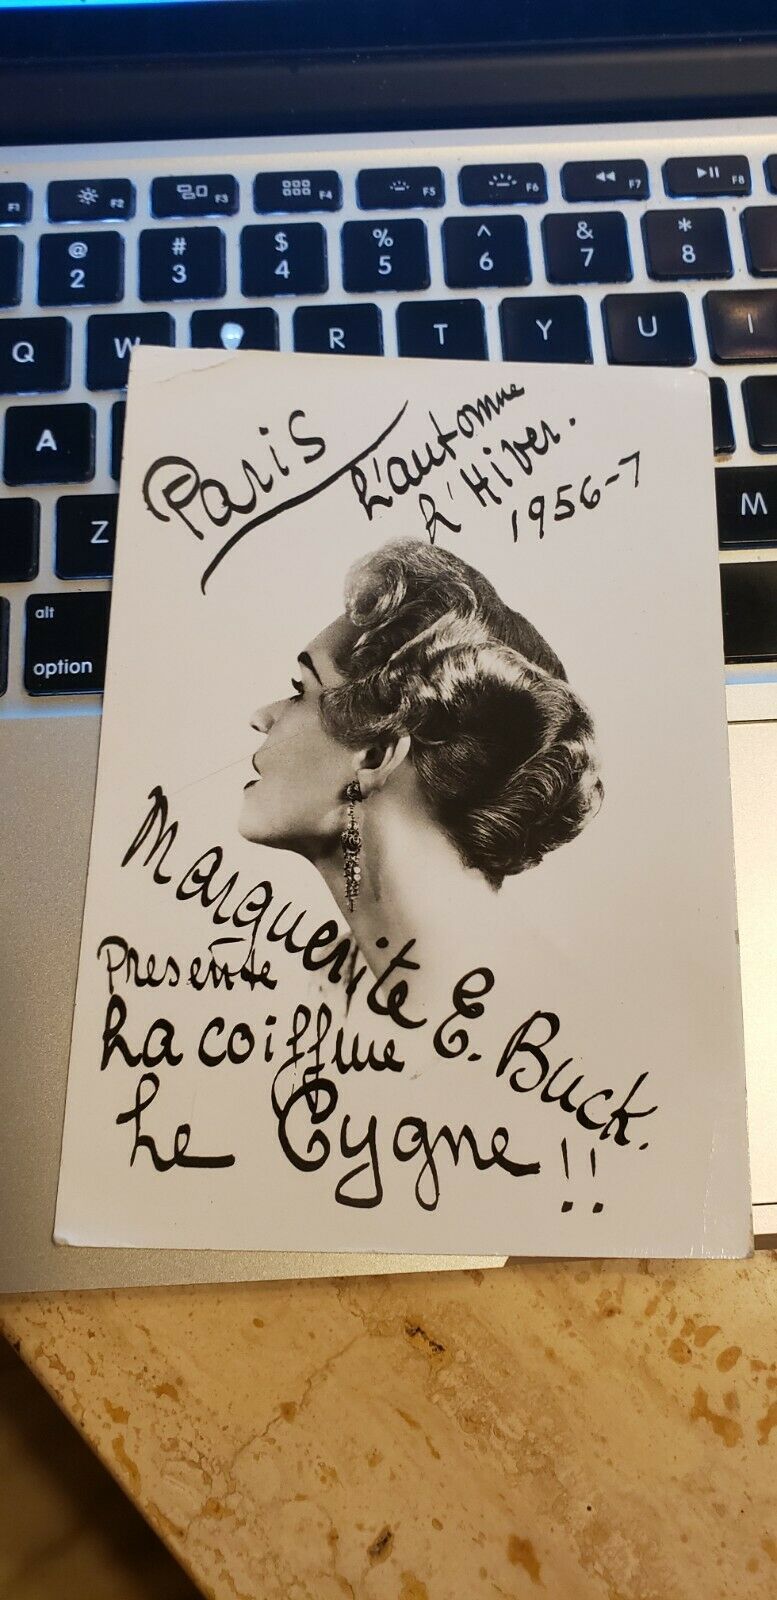 F1 F2 F3 F4 F5 F6 F7 F8
@ # $ % ^ & *
2 3 4 5 6 7 8
Q W R T Y U I
A
Z M
alt
option
Paris
L'automne
L'Hiver.
1956-7
Marguerite E. Buck.
Presente
La coiffure
Le Cygne!!